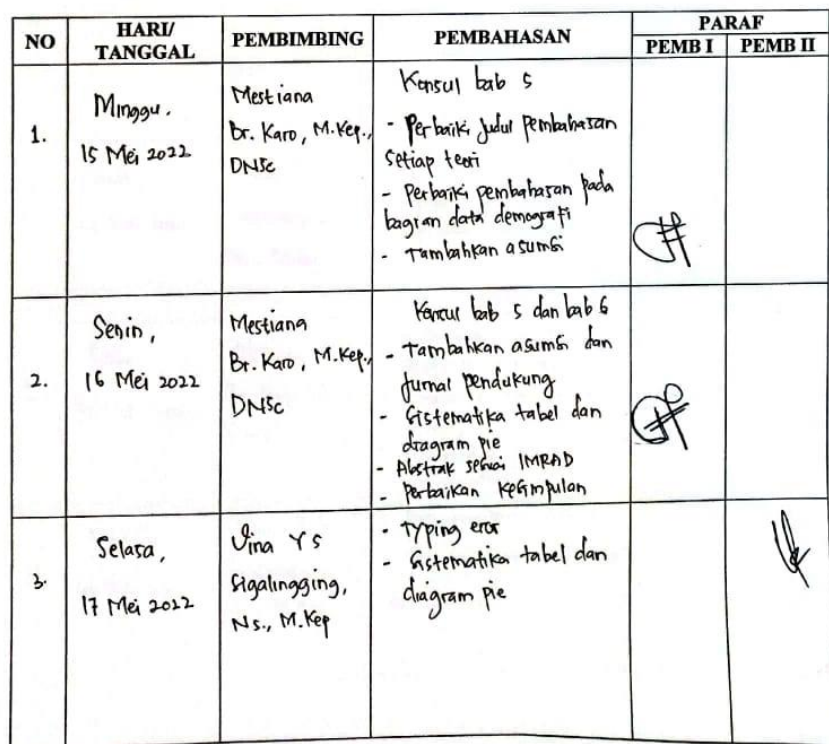 NO HARI/ TANGGAL PEMBIMBING PEMBAHASAN PARAF
PEMB I PEMB II
1.
Minggu,
15 Mei 2022
Mestiana
Br. Karo, M.Kep.,
DNSc
Konsul bab 5
- Perbaiki judul pembahasan
setiap teori
- Perbaiki pembahasan pada
bagian data demografi
- Tambahkan asumsi
2.
Senin,
16 Mei 2022
Mestiana
Br. Karo, M.Kep.,
DNSc
Konsul bab 5 dan bab 6
- Tambahkan asumsi dan
jurnal pendukung
- Sistematika tabel dan
diagram pie
- Abstrak sesuai IMRAD
- Perbaikan kesimpulan
3.
Selasa,
17 Mei 2022
Vina YS
Sigalingging,
Ns., M.Kep
- Typing eror
- Sistematika tabel dan
diagram pie